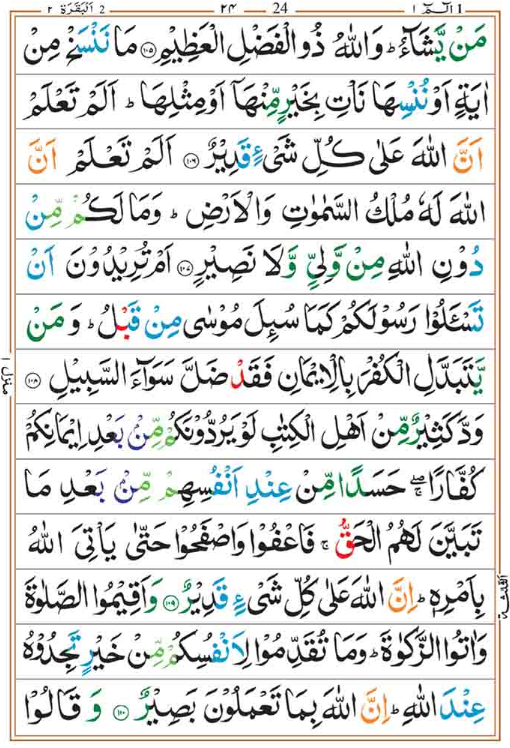 الٓـمّٓ ١ 1 24 ٢٤ اَلْبَقَرَة ٢ 2
مَنْ يَّشَآءُ ؕ وَاللّٰهُ ذُو الْفَضْلِ الْعَظِيْمِ ۝۱۰۵ مَا نَنْسَخْ مِنْ
اٰيَةٍ اَوْ نُنْسِهَا نَاْتِ بِخَيْرٍ مِّنْهَاۤ اَوْ مِثْلِهَا ؕ اَلَمْ تَعْلَمْ
اَنَّ اللّٰهَ عَلٰى كُلِّ شَیْءٍ قَدِيْرٌ ۝۱۰۶ اَلَمْ تَعْلَمْ اَنَّ
اللّٰهَ لَهٗ مُلْكُ السَّمٰوٰتِ وَالْاَرْضِ ؕ وَمَا لَكُمْ مِّنْ
دُوْنِ اللّٰهِ مِنْ وَّلِیٍّ وَّلَا نَصِيْرٍ ۝۱۰۷ اَمْ تُرِيْدُوْنَ اَنْ
تَسْـَٔلُوْا رَسُوْلَكُمْ كَمَا سُىِٕلَ مُوْسٰى مِنْ قَبْلُ ؕ وَمَنْ
يَّتَبَدَّلِ الْكُفْرَ بِالْاِيْمَانِ فَقَدْ ضَلَّ سَوَآءَ السَّبِيْلِ ۝۱۰۸
وَدَّ كَثِيْرٌ مِّنْ اَهْلِ الْكِتٰبِ لَوْ يَرُدُّوْنَكُمْ مِّنْۢ بَعْدِ اِيْمَانِكُمْ
كُفَّارًا ۖۚ حَسَدًا مِّنْ عِنْدِ اَنْفُسِهِمْ مِّنْۢ بَعْدِ مَا
تَبَيَّنَ لَهُمُ الْحَقُّ ۚ فَاعْفُوْا وَاصْفَحُوْا حَتّٰى يَاْتِیَ اللّٰهُ
بِاَمْرِهٖ ؕ اِنَّ اللّٰهَ عَلٰى كُلِّ شَیْءٍ قَدِيْرٌ ۝۱۰۹ وَاَقِيْمُوا الصَّلٰوةَ
وَاٰتُوا الزَّكٰوةَ ؕ وَمَا تُقَدِّمُوْا لِاَنْفُسِكُمْ مِّنْ خَيْرٍ تَجِدُوْهُ
عِنْدَ اللّٰهِ ؕ اِنَّ اللّٰهَ بِمَا تَعْمَلُوْنَ بَصِيْرٌ ۝۱۱۰ وَقَالُوْا
منزل ١